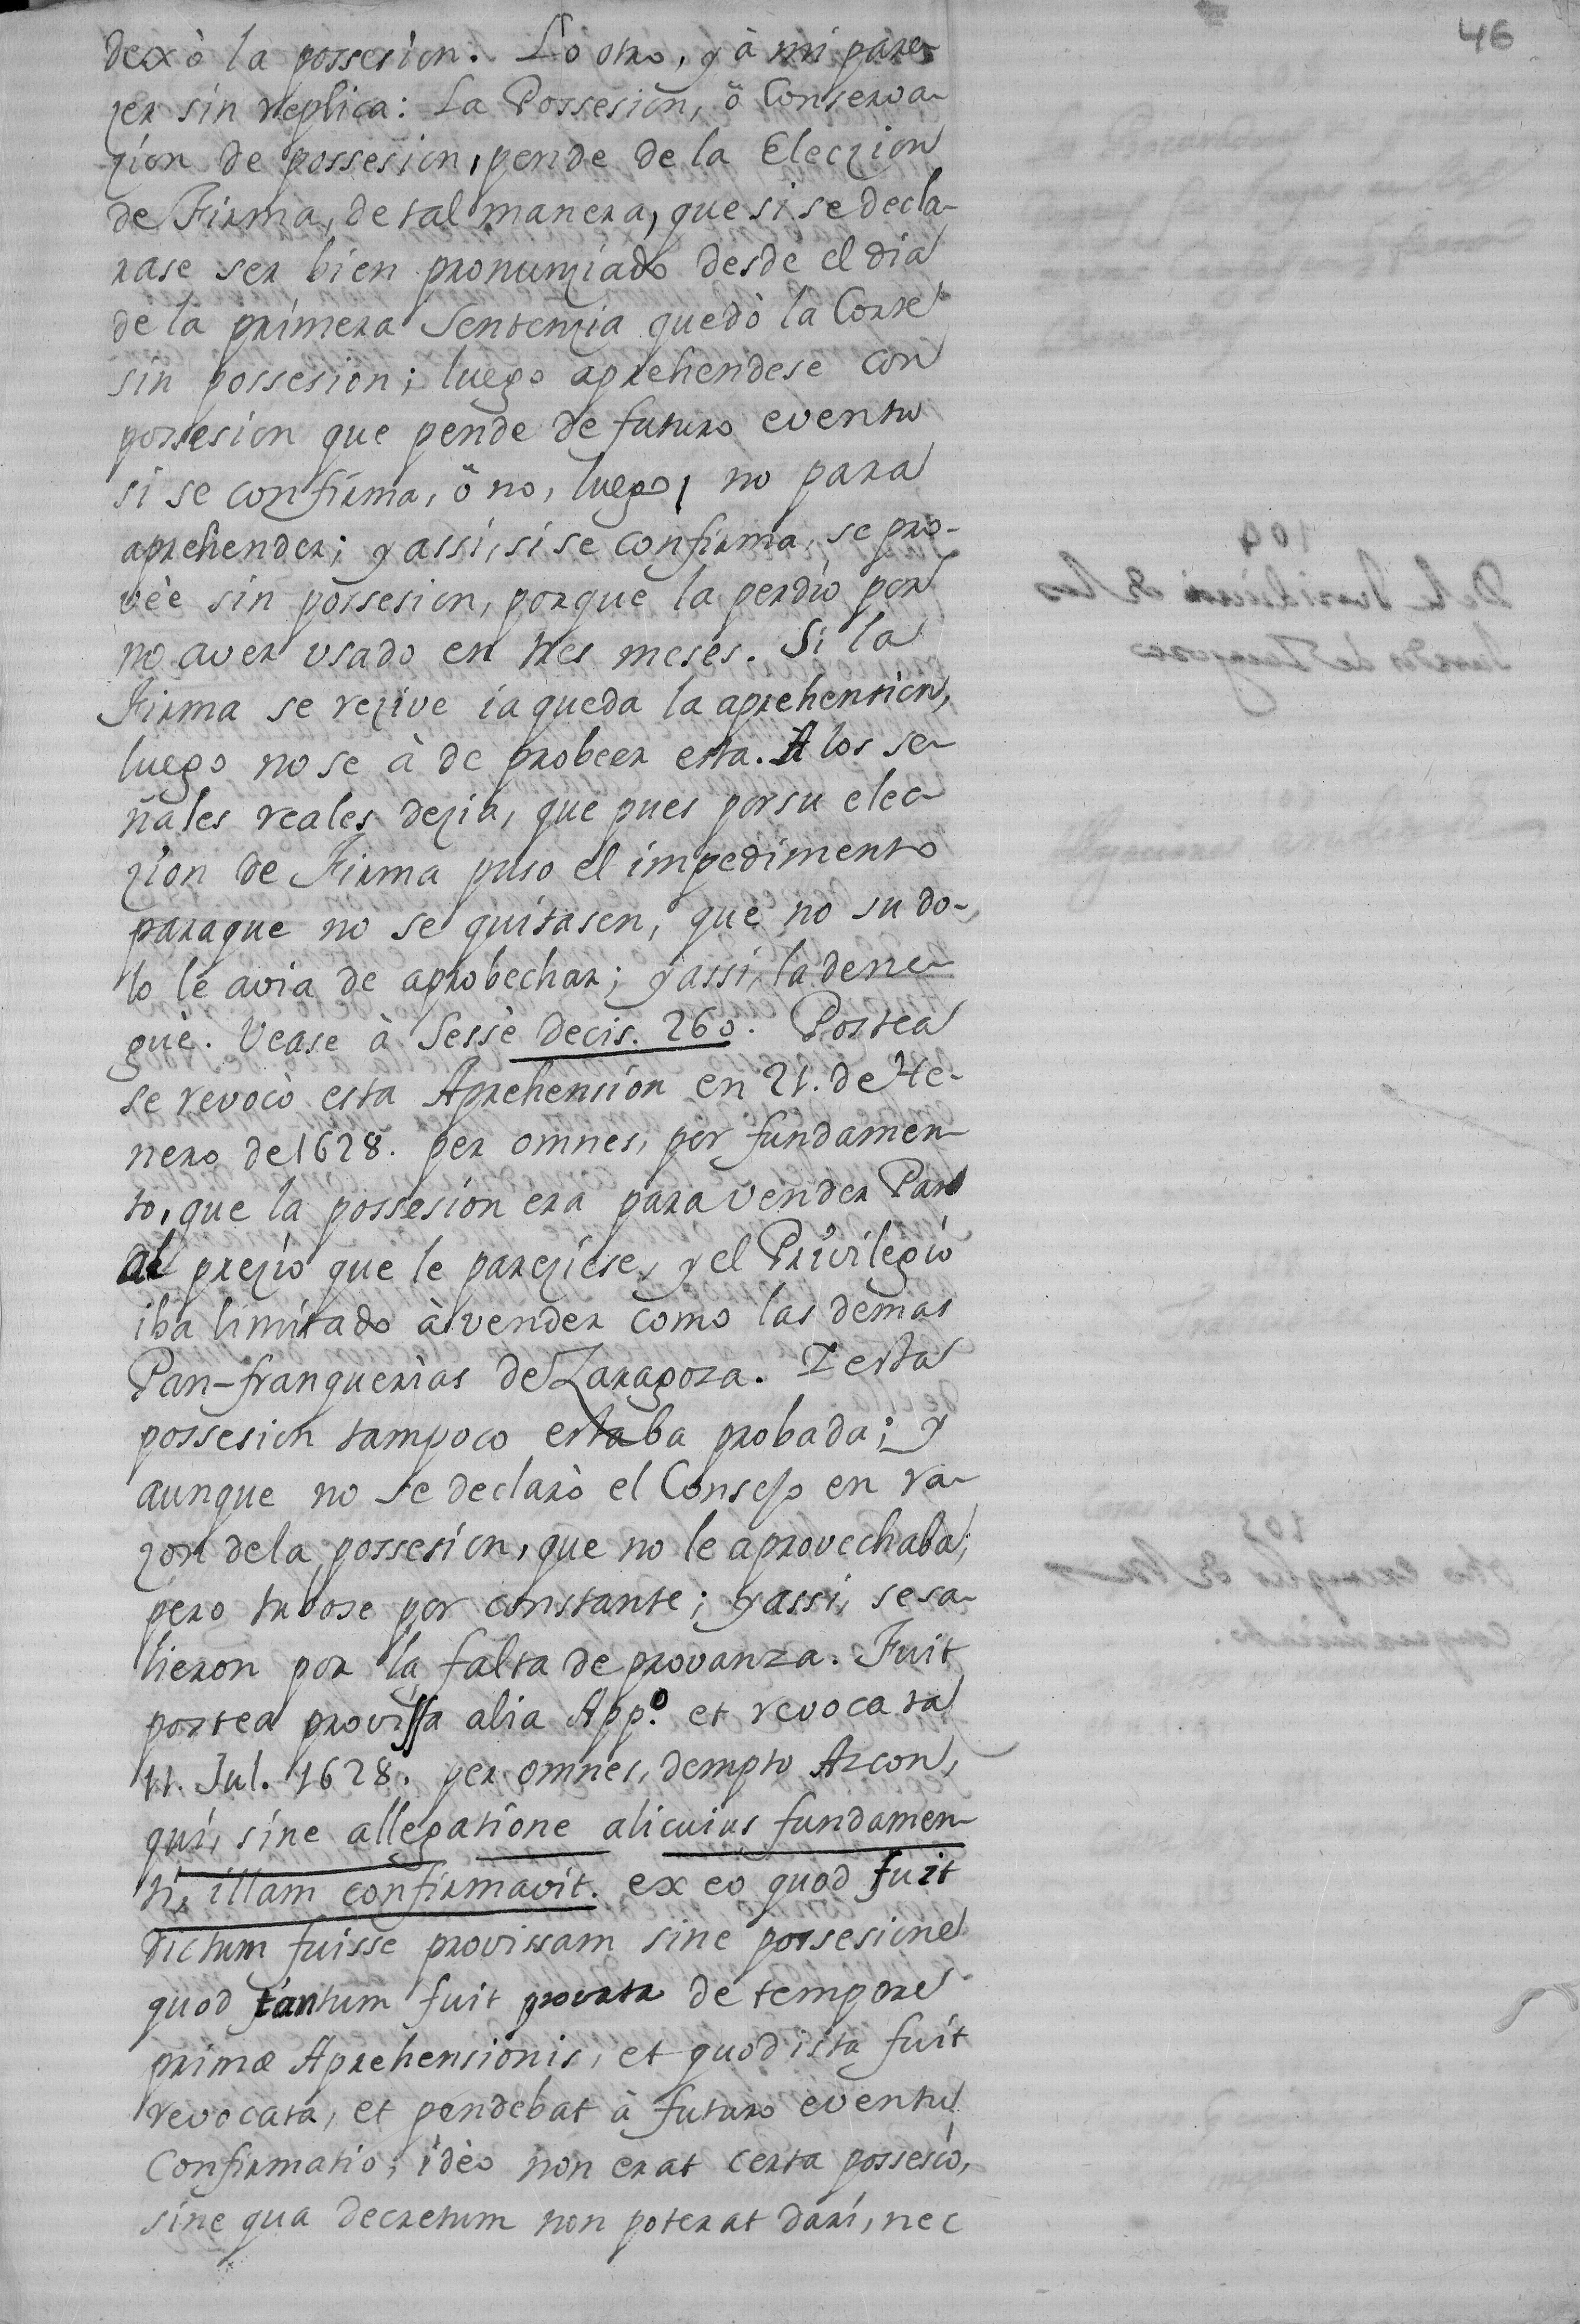 46
dexò la possesion. Lo otro, y à mi pare-
zer sin replica: La Possesion, ö Conserva-
zion de possesion, pende de la Eleczion
de Firma, de tal manera, que si se decla-
rase ser bien pronunziado desde el dia
de la primera Sentenzia quedò la Corte
sin possesion; luego aprehendese con
possesion que pende de futuro eventu
si se confirma, ö no, luego, no para
aprehender; y assi, si se confirma, se pro-
vèe sin possesion, porque la perdiò por
no aver usado en tres meses. Si la
Firma se rezive ia queda la aprehension,
luego no se à de probeer esta. A los se-
ñales reales dezia, que pues por su elec-
zion de Firma puso el impedimento
paraque no se quitasen, que no su do-
lo le avia de aprobechar; y assi, la dene-
guè. Vease à Sessè Decis. 260. Postea
se revocò esta Aprehension en 21. de He-
nero de 1628. per omnes, por fundamen-
to, que la possesion era para vender Pan
al prezio que le pareziese, y el Privilegio
iba limitado à vender como las demas
Pan-franquerias de Zaragoza. I esta
possesion tampoco estaba probada; y
aunque no se declarò el Consejo en ra-
zon dela possesion, que no le aprovechaba;
pero tubose por constante; y assi, se sa-
lieron por la falta de provanza. Fuit
postea provissa alia App.º et revocata
11. Jul. 1628. per omnes, dempto Azcon,
qui, sine allegatione alicuius fundamen-
ti, illam confirmavit. ex eo quod fuit
dictum fuisse provissam sine possesione
quod tantum fuit de tempore
primæ Aprehensionis, et quod ista fuit
revocata, et pendebat à futuro eventu
Confirmatio; idèo non erat certa possesio,
sine qua decretum non poterat dari, nec